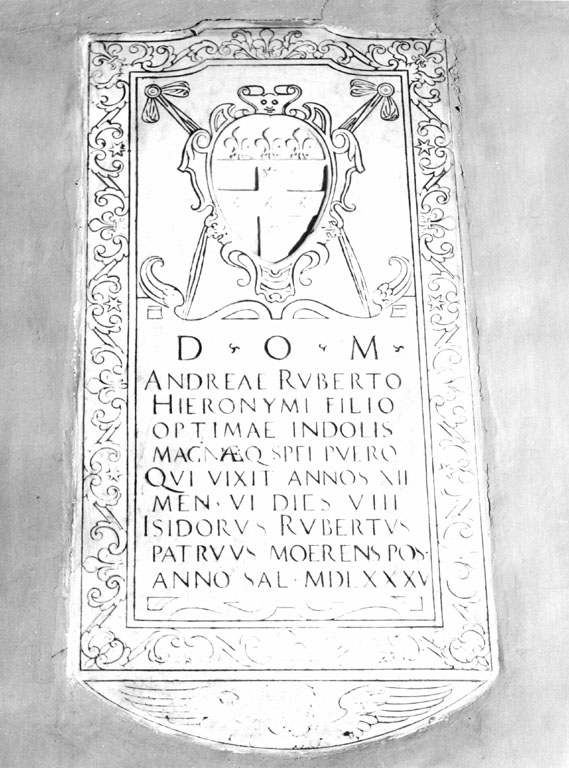 D · O · M ·
ANDREAE RVBERTO
HIERONYMI FILIO
OPTIMAE INDOLIS
MAGNÆQ SPEI PVERO
QVI VIXIT ANNOS XII
MEN · VI DIES VIII
ISIDORVS RVBERTVS
PATRVVS MOERENS POS·
ANNO SAL · MDLXXXV